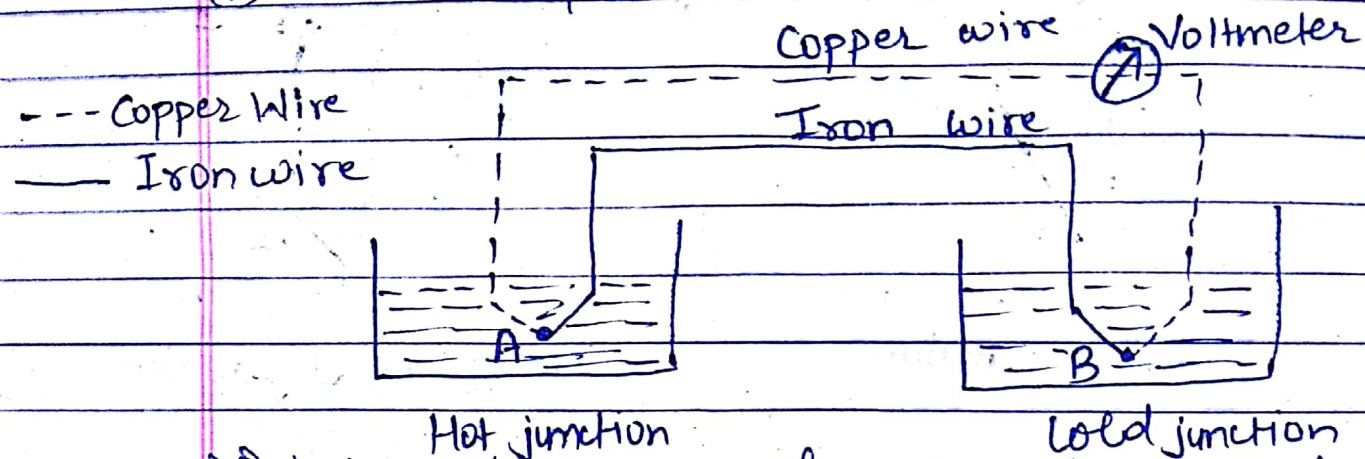 Copper wire
Voltmeter
--- Copper Wire
Iron wire
— Iron wire
A
B
Hot junction
Cold junction